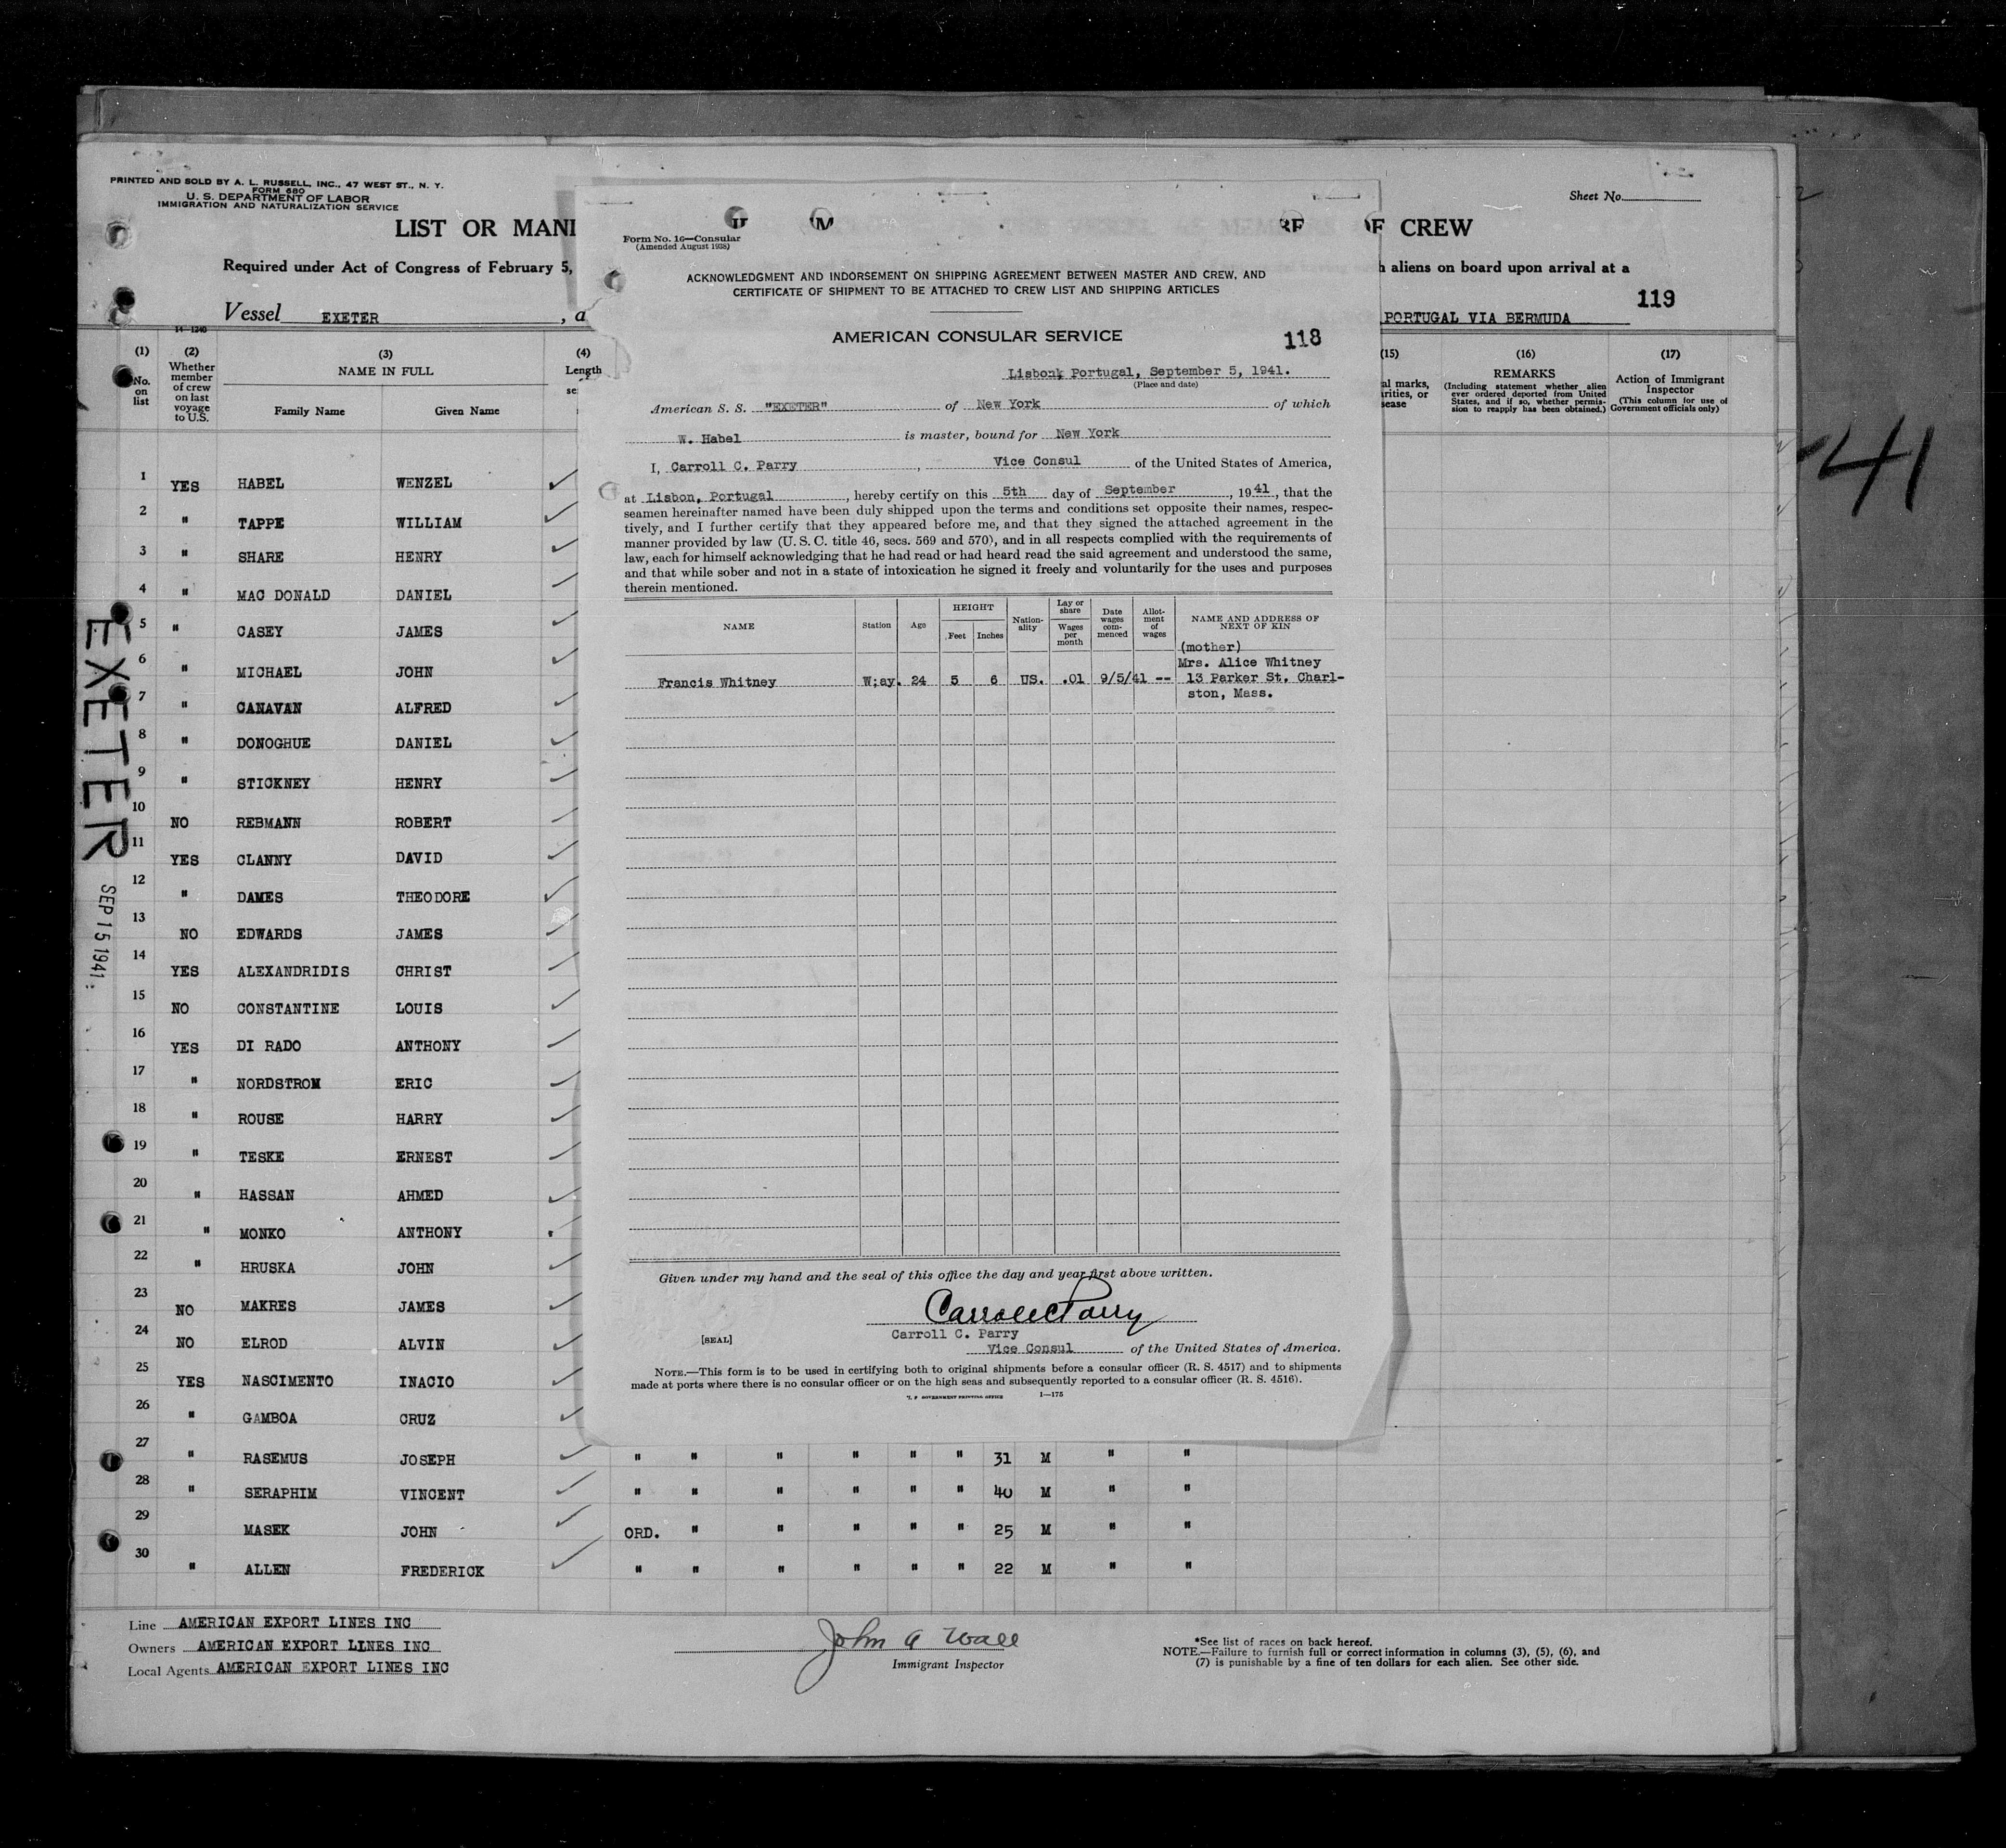 PRINTED AND SOLD BY A. L. RUSSELL, INC., 47 WEST ST., N. Y.
FORM 680
U. S. DEPARTMENT OF LABOR
IMMIGRATION AND NATURALIZATION SERVICE
Sheet No.
LIST OR MANI
OF CREW
Required under Act of Congress of February 5,
aliens on board upon arrival at a
119
Vessel EXETER , a
PORTUGAL VIA BERMUDA
14—1240
(1) No. on list
(2) Whether member of crew on last voyage to U.S.
(3) NAME IN FULL
Family Name Given Name
(4) Length
se
(15)
al marks,
rities, or
ease
(16) REMARKS
(Including statement whether alien ever ordered deported from United States, and if so, whether permission to reapply has been obtained.)
(17) Action of Immigrant Inspector
(This column for use of Government officials only)
1 YES HABEL WENZEL
2 " TAPPE WILLIAM
3 " SHARE HENRY
4 " MAC DONALD DANIEL
5 " CASEY JAMES
6 " MICHAEL JOHN
7 " CANAVAN ALFRED
8 " DONOGHUE DANIEL
9 " STICKNEY HENRY
10 NO REBMANN ROBERT
11 YES CLANNY DAVID
12 " DAMES THEODORE
13 NO EDWARDS JAMES
14 YES ALEXANDRIDIS CHRIST
15 NO CONSTANTINE LOUIS
16 YES DI RADO ANTHONY
17 " NORDSTROM ERIC
18 " ROUSE HARRY
19 " TESKE ERNEST
20 " HASSAN AHMED
21 " MONKO ANTHONY
22 " HRUSKA JOHN
23 NO MAKRES JAMES
24 NO ELROD ALVIN
25 YES NASCIMENTO INACIO
26 " GAMBOA CRUZ
27 " RASEMUS JOSEPH " " " " " " 31 M " "
28 " SERAPHIM VINCENT " " " " " " 40 M " "
29 MASEK JOHN ORD. " " " " " 25 M " "
30 " ALLEN FREDERICK " " " " " " 22 M " "
Line AMERICAN EXPORT LINES INC
Owners AMERICAN EXPORT LINES INC
Local Agents AMERICAN EXPORT LINES INC
John A Wall
Immigrant Inspector
*See list of races on back hereof.
NOTE.—Failure to furnish full or correct information in columns (3), (5), (6), and
(7) is punishable by a fine of ten dollars for each alien. See other side.
EXETER
SEP 15 1941
41
Form No. 16—Consular
(Amended August 1938)
ACKNOWLEDGMENT AND INDORSEMENT ON SHIPPING AGREEMENT BETWEEN MASTER AND CREW, AND
CERTIFICATE OF SHIPMENT TO BE ATTACHED TO CREW LIST AND SHIPPING ARTICLES
AMERICAN CONSULAR SERVICE
118
Lisbon, Portugal, September 5, 1941.
(Place and date)
American S. S. "EXETER" of New York of which
W. Habel is master, bound for New York
I, Carroll C. Parry, Vice Consul of the United States of America,
at Lisbon, Portugal, hereby certify on this 5th day of September, 1941, that the
seamen hereinafter named have been duly shipped upon the terms and conditions set opposite their names, respec-
tively, and I further certify that they appeared before me, and that they signed the attached agreement in the
manner provided by law (U. S. C. title 46, secs. 569 and 570), and in all respects complied with the requirements of
law, each for himself acknowledging that he had read or had heard read the said agreement and understood the same,
and that while sober and not in a state of intoxication he signed it freely and voluntarily for the uses and purposes
therein mentioned.
NAME Station Age HEIGHT Feet Inches Nation-ality Lay or share Wages per month Date wages com-menced Allot-ment of wages NAME AND ADDRESS OF NEXT OF KIN
(mother)
Mrs. Alice Whitney
Francis Whitney W;ay. 24 5 6 US. .01 9/5/41 -- 13 Parker St. Charl-
ston, Mass.
Given under my hand and the seal of this office the day and year first above written.
Carroll C Parry
[SEAL]
Carroll C. Parry
Vice Consul of the United States of America.
NOTE.—This form is to be used in certifying both to original shipments before a consular officer (R. S. 4517) and to shipments
made at ports where there is no consular officer or on the high seas and subsequently reported to a consular officer (R. S. 4516).
U. S. GOVERNMENT PRINTING OFFICE 1—175